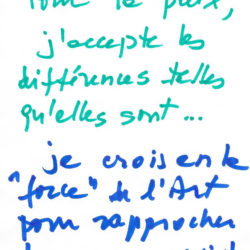 Pour la paix,
j'accepte les
différences telles
qu'elles sont...
je crois en la
"force" de l'Art
pour rapprocher